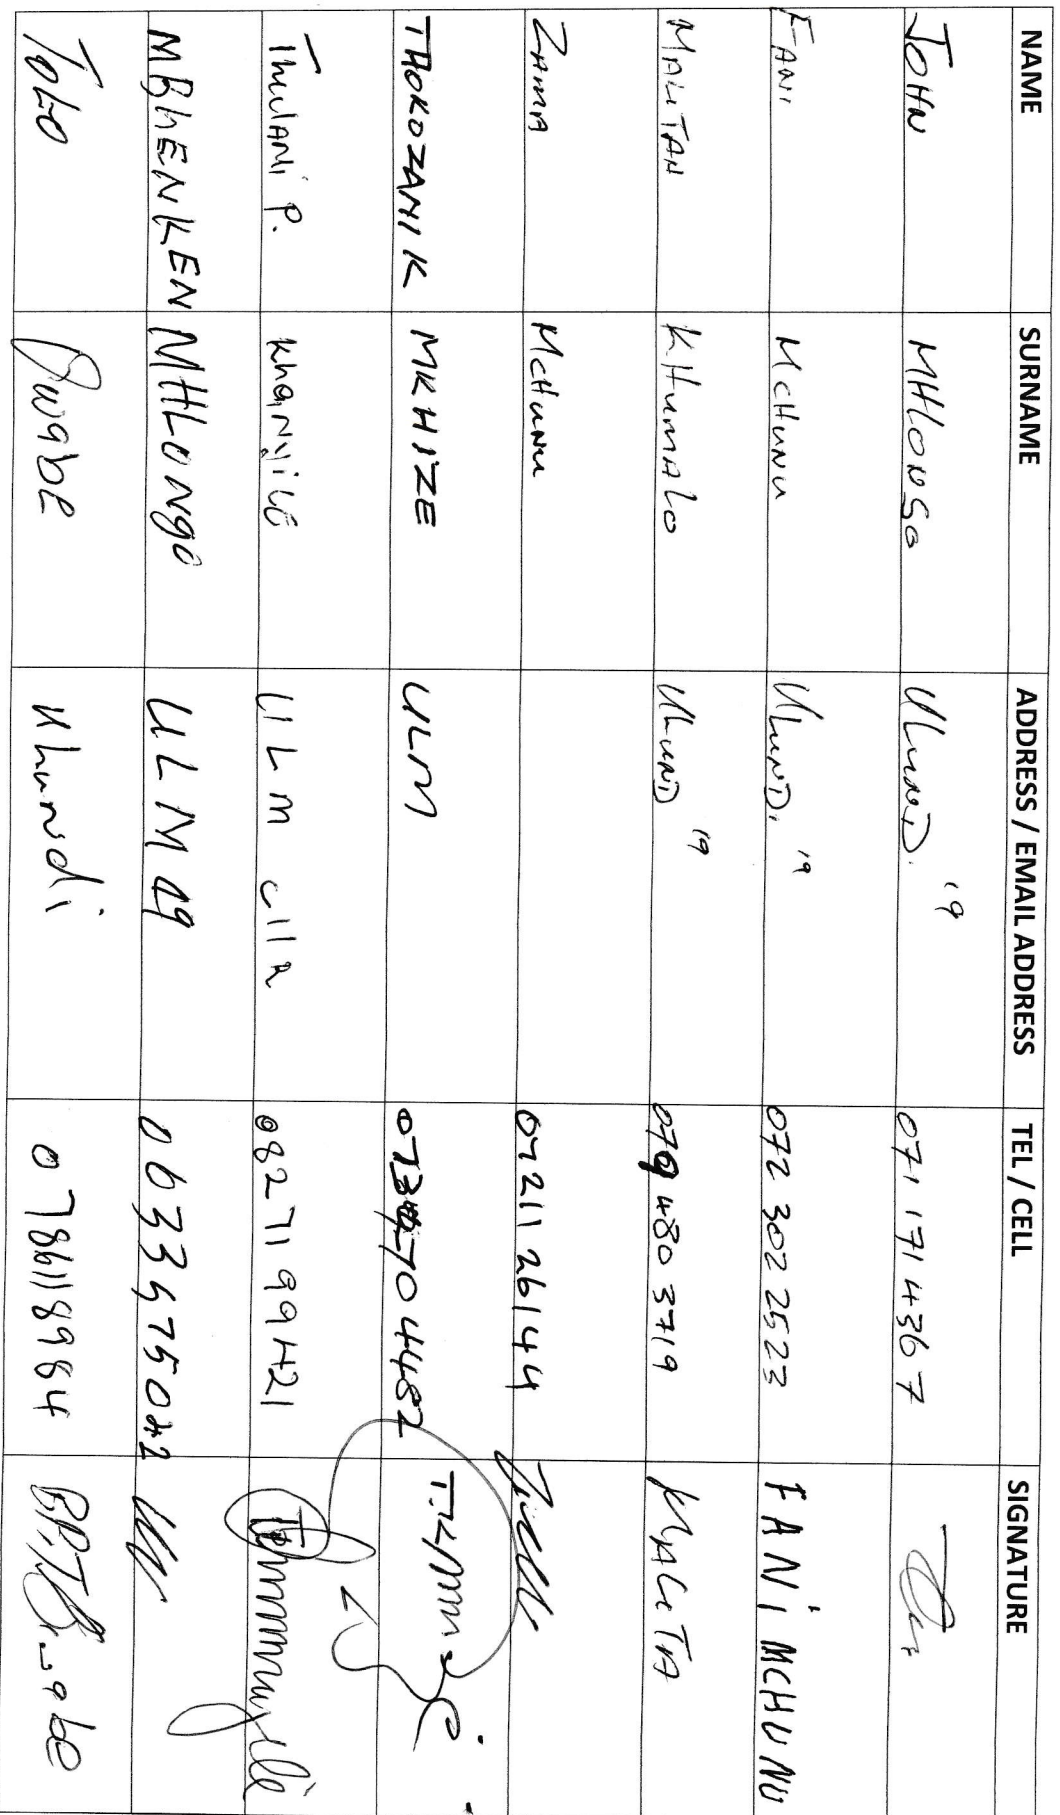 NAME SURNAME ADDRESS / EMAIL ADDRESS TEL / CELL SIGNATURE
JOHN MHLONGO ULUNDI 19 071 171 4367
FANI MCHUNU ULUNDI 19 072 302 2523 FANI MCHUNU
MALITAH KHUMALO ULUNDI 19 079 480 3719 MALITA
ZAMA MCHUNU 0721126144
THOKOZANI K MKHIZE ULM
Thulani P. Khanyile ULM cllr 0827199421
MBhENKENI MHLONgO ULM 19
ToLo Qwabe Ulundi 0786118984